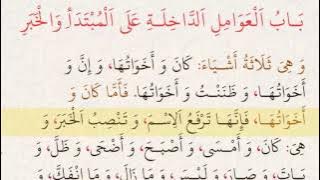 بَابُ الْعَوَامِلِ الدَّاخِلَةِ عَلَى الْمُبْتَدَأِ وَالْخَبَرِ
وَ هِيَ ثَلَاثَةُ أَشْيَاءَ: كَانَ وَ أَخَوَاتُهَا، وَ إِنَّ وَ
أَخَوَاتُهَا، وَ ظَنَنْتُ وَ أَخَوَاتُهَا. فَأَمَّا كَانَ وَ
أَخَوَاتُهَا، فَإِنَّهَا تَرْفَعُ الِاسْمَ، وَ تَنْصِبُ الْخَبَرَ، وَ
هِيَ: كَانَ، وَ أَمْسَى، وَ أَصْبَحَ، وَ أَضْحَى، وَ ظَلَّ، وَ
بَاتَ، وَ صَارَ، وَ لَيْسَ، وَ مَا زَالَ، وَ مَا انْفَكَّ، وَ